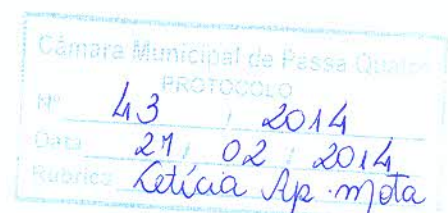 Câmara Municipal de Passa Quatro
PROTOCOLO
Nº 43 / 2014
Data 27 / 02 / 2014
Rubrica Letícia Ap. mota